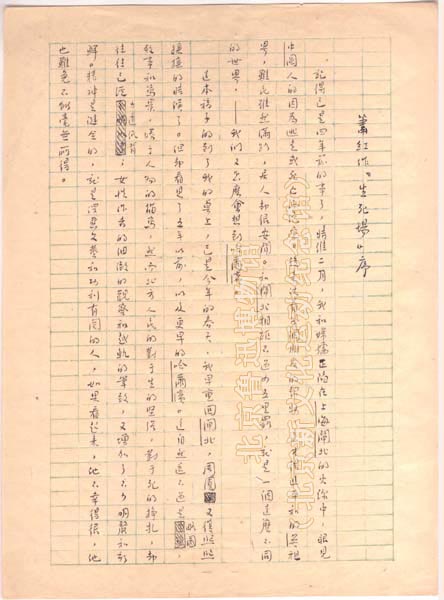 蕭紅作『生死場』序
記得已是四年前的事了,時維二月,我和婦孺正陷在上海閘北的火線中,眼見
中國人的因為逃走或死亡而絕跡。後來仗着幾個朋友的幫助,這才得進平和的英租
界,難民雖然滿路,居人却很安閒。和閘北相距不過四五里罷,就是一個這麼不同
的世界,——我們又怎麼會想到哈爾濱。
這本稿子的到了我的桌上,已是今年的春天,我早重回閘北,周圍又復熙熙
攘攘的時候了。但却看見了五年以前,以及更早的哈爾濱。這自然還不過是略圖,
敘事和寫景,勝于人物的描寫,然而北方人民的對于生的堅強,對于死的掙扎,却
往往已經力透紙背;女性作者的細緻的觀察和越軌的筆致,又增加了不少明麗和新
鮮。精神是健全的,就是深惡文藝和功利有關的人,如果看起來,他不幸得很,他
也難免不能毫無所得。
北京鲁迅博物馆
(北京新文化运动纪念馆)